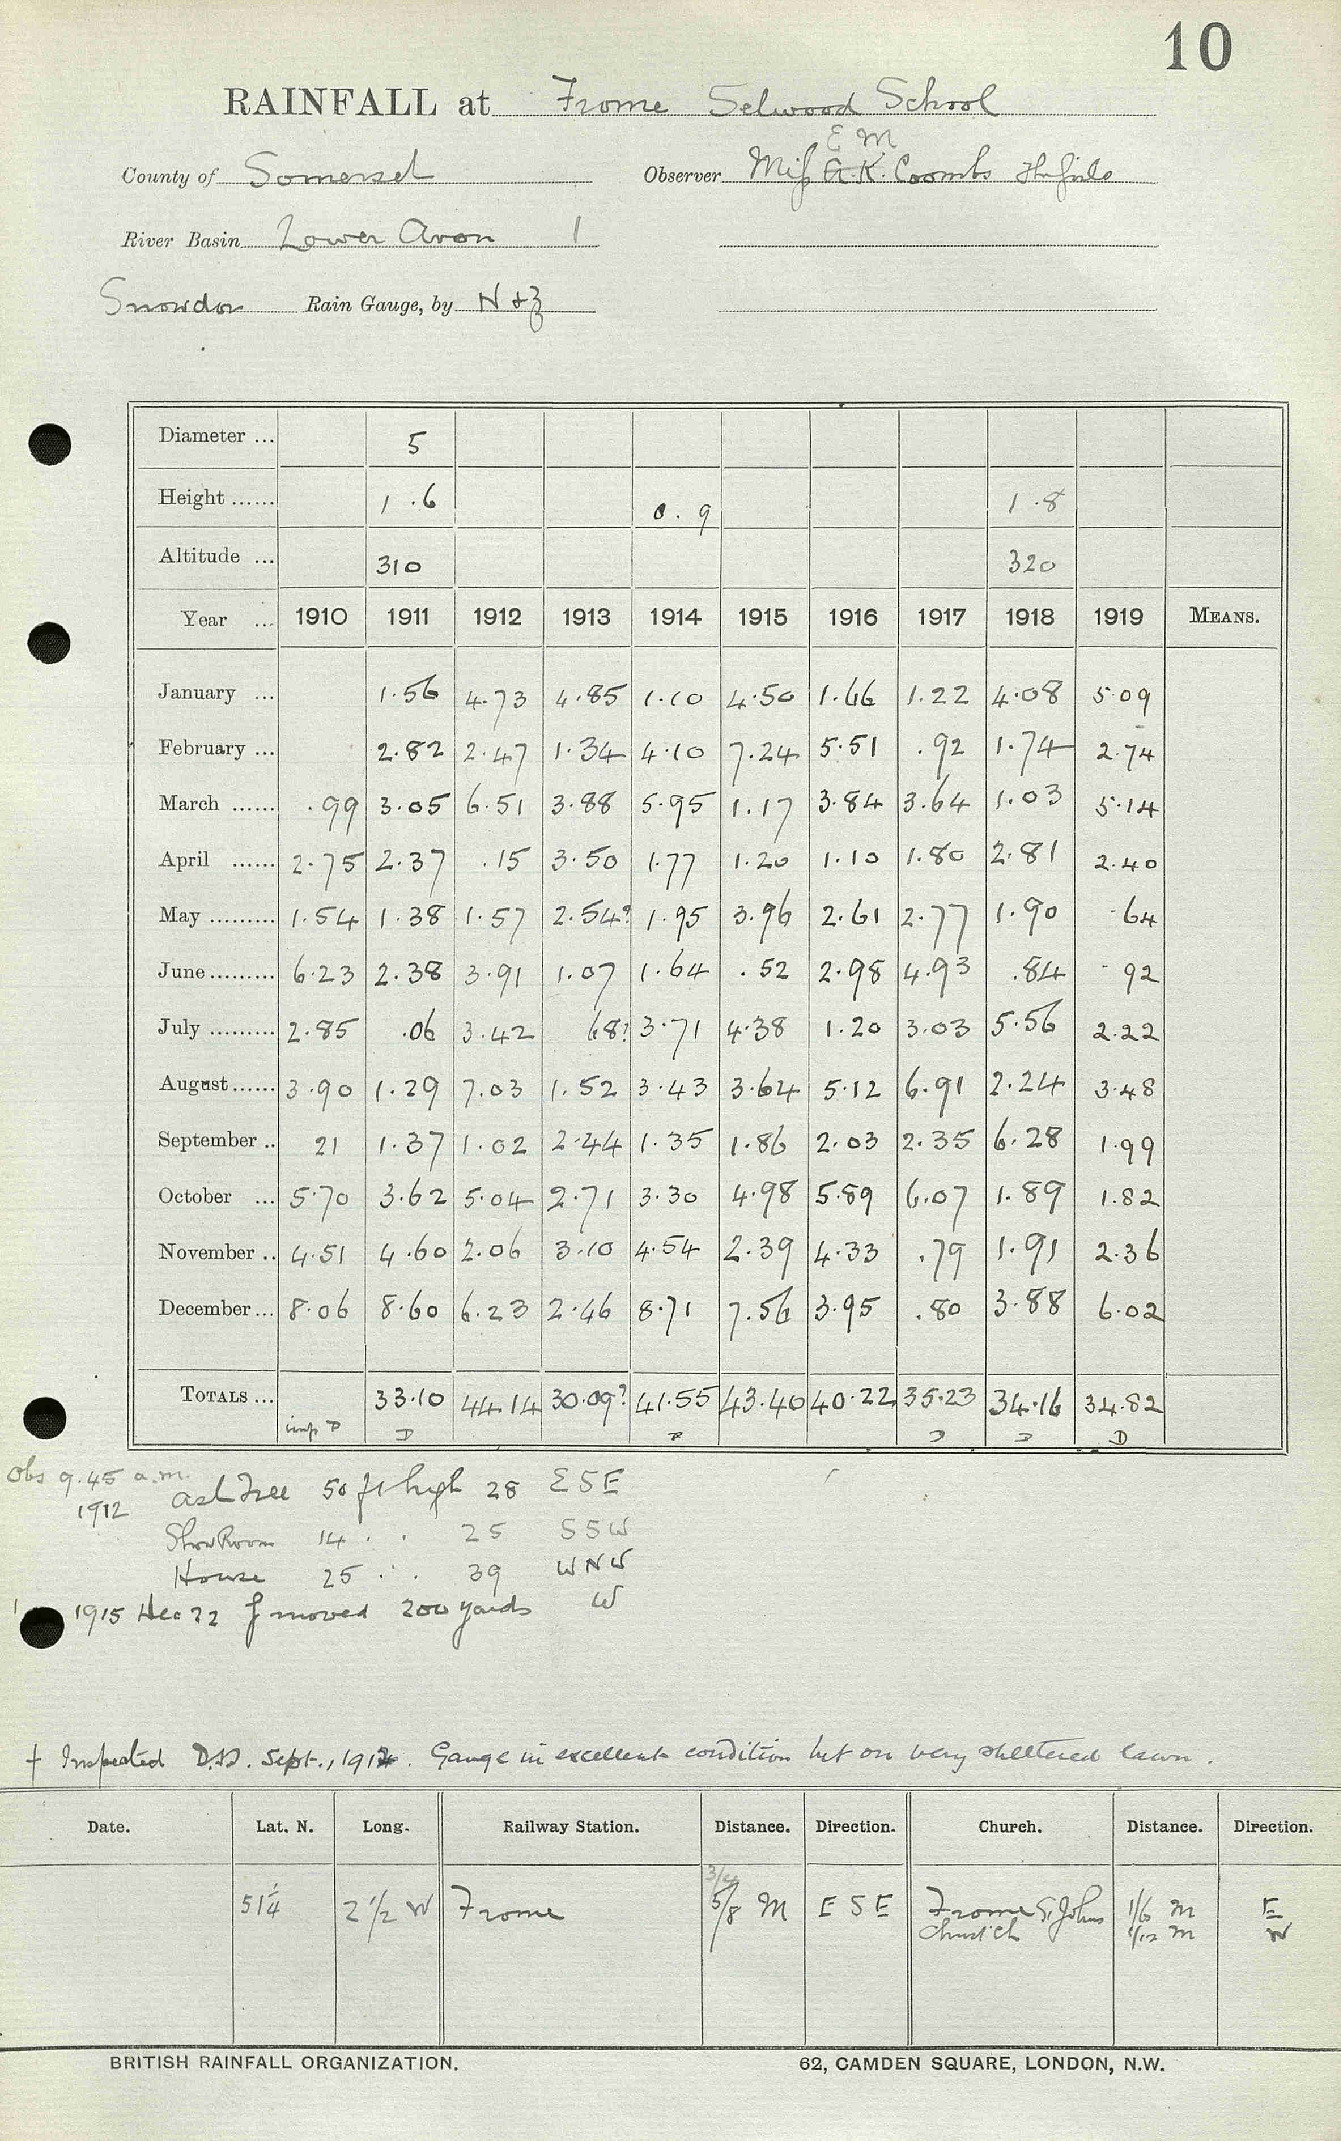 10
RAINFALL at Frome Selwood School
E M
County of Somerset Observer Miss A.K. Coombs
River Basin Lower Avon 1
Snowdon Rain Gauge, by N & Z
Diameter ... 5
Height ...... 1 .6 0. 9 1 .8
Altitude ... 310 320
Year ... 1910 1911 1912 1913 1914 1915 1916 1917 1918 1919 MEANS.
January ... 1.56 4.73 4.85 1.10 4.50 1.66 1.22 4.08 5.09
February ... 2.82 2.47 1.34 4.10 7.24 5.51 .92 1.74 2.74
March ...... .99 3.05 6.51 3.88 5.95 1.17 3.84 3.64 1.03 5.14
April ...... 2.75 2.37 .15 3.50 1.77 1.20 1.10 1.80 2.81 2.40
May ......... 1.54 1.38 1.57 2.54? 1.95 3.96 2.61 2.77 1.90 .64
June ......... 6.23 2.38 3.91 1.07 1.64 .52 2.98 4.93 .84 .92
July ......... 2.85 .06 3.42 68? 3.71 4.38 1.20 3.03 5.56 2.22
August ...... 3.90 1.29 7.03 1.52 3.43 3.64 5.12 6.91 2.24 3.48
September .. 21 1.37 1.02 2.44 1.35 1.86 2.03 2.35 6.28 1.99
October ... 5.70 3.62 5.04 2.71 3.30 4.98 5.89 6.07 1.89 1.82
November .. 4.51 4.60 2.06 3.10 4.54 2.39 4.33 .79 1.91 2.36
December ... 8.06 8.60 6.23 2.46 8.71 7.56 3.95 .80 3.88 6.02
TOTALS ... 33.10 44.14 30.09? 41.55 43.40 40.22 35.23 34.16 34.82
imp P D P D D D
Obs 9.45 a.m.
1912 Ash Tree 50 ft high 28 E S E
Show Room 14 . . 25 S S W
House 25 . . 39 W N W
1915 Dec 22 g moved 200 yards W
+ Inspected Sept., 1912. Gauge in excellent condition but on very sheltered lawn.
Date. Lat. N. Long. Railway Station. Distance. Direction. Church. Distance. Direction.
3/4
51¼ 2 1/2 W Frome 5/8 M E S E Frome St Johns 1/6 m E
Christ Ch 1/12 m W
BRITISH RAINFALL ORGANIZATION. 62, CAMDEN SQUARE, LONDON, N.W.